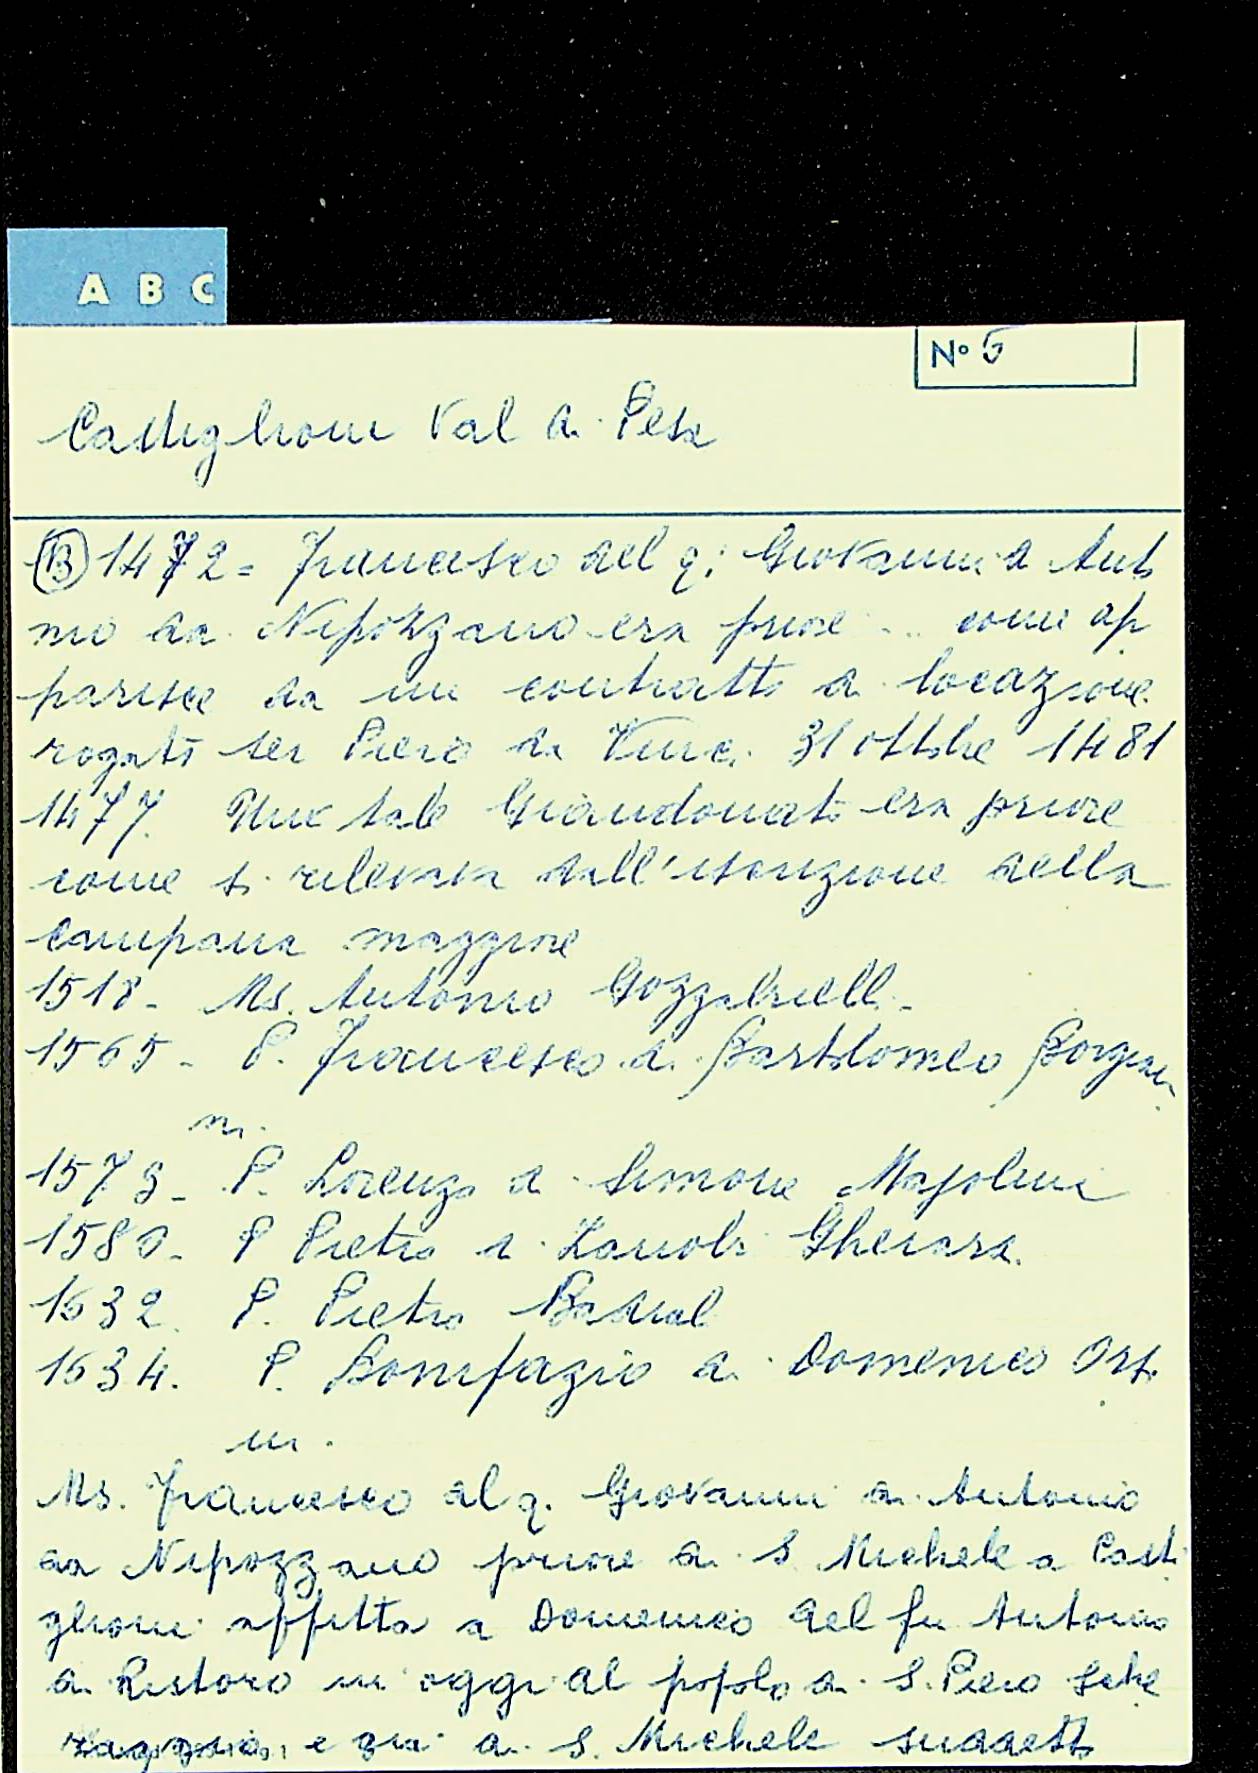 A B C
N° 5
Castiglioni Val di Pesa
(B) 1472 = Francesco del q: Giovanni di Anto
nio da Nipozzano era priore .. come ap
parisce da un contratto di locazione
rogato ser Piero da Vinci 31 ottobre 1481
1477. Un tale Giandonato era priore
come si rilevava dall'iscrizione della
campana maggiore
1518 - Ms. Antonio Gozzabrielli -
1565 - P. Francesco di Bartolomeo Borgian
ni.
P. Lorenzo di Simone
1580 - P Pietro di Zanobi Gherara
1632. P. Pietro
1634. P. Bonifazio di Domenico Ort
ni.
Ms. Francesco al q. Giovanni di Antonio
da Nipozzano priore di S Michele a Casti
glioni affitta a Domenico del fu Antonio
di Ristoro in oggi al popolo di S. Piero
e gia di S. Michele suddetto